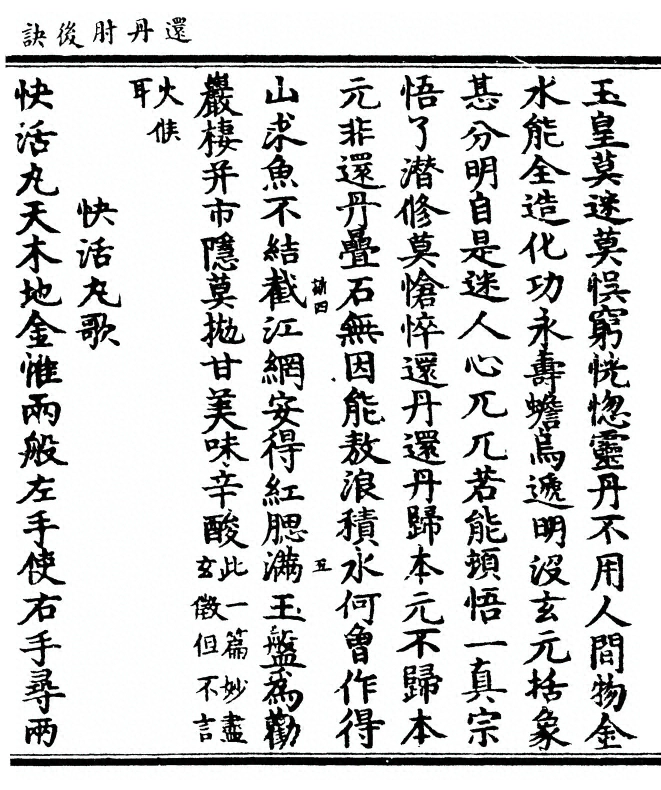 還丹肘後訣
玉皇莫迷莫悞窮恍惚靈丹不用人間物金
水能全造化功永壽蟾烏遞明沒玄元括象
甚分明自是迷人心兀兀若能頓悟一真宗
悟了潛修莫愴悴還丹還丹歸本元不歸本
元非還丹疊石無因能敖浪積水何曾作得
山求魚不結截江網安得紅腮滿玉盤為勸
巖棲并市隱莫拋甘美味辛酸此一篇妙盡
玄徵但不言
火候
耳
快活丸歌
快活丸天木地金惟兩般左手使右手尋兩
四
五